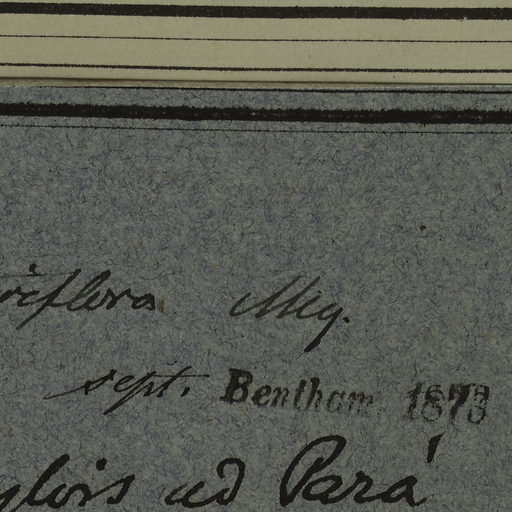 iflora Miq.
sept. Bentham 1873
ylvis ad Pará